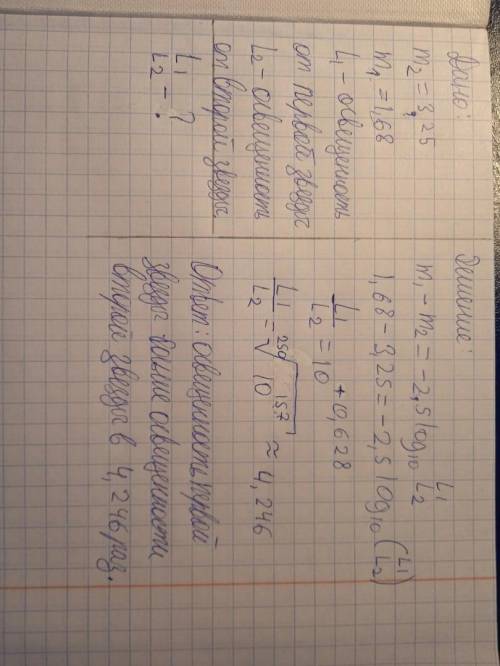 Дано:
m₂ = 3,25
m₁ = 1,68
L₁ – освещенность
от первой звезды
L₂ – освещенность
от второй звезды
L₁/L₂ – ?
Решение:
m₁ – m₂ = –2,5 log₁₀ L₁/L₂
1,68 – 3,25 = –2,5 log₁₀ (L₁/L₂)
L₁/L₂ = 10^(+0,628)
L₁/L₂ = ²⁵⁰√10¹⁵⁷ ≈ 4,246
Ответ: освещенность первой
звезды больше освещенности
второй звезды в 4,246 раз.